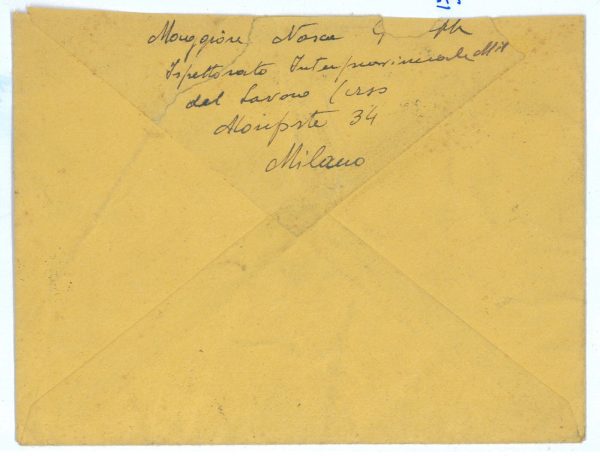 Maggiore Nasca
Ispettorato Interprovinciale Mil
del Lavoro Corso
Monforte 34
Milano